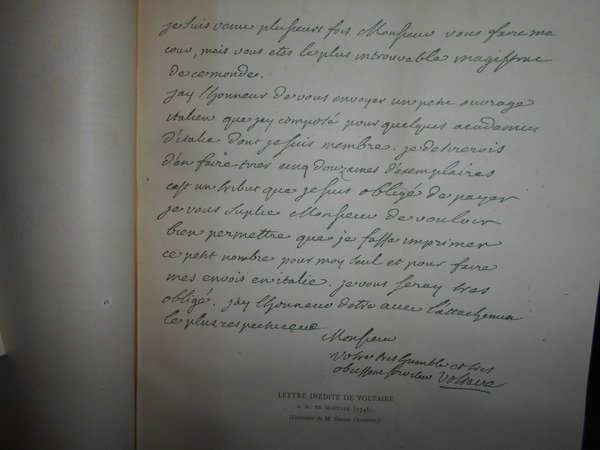 je suis venu plusieurs fois Monsieur vous faire ma
cour, mais vous etes le plus introuvable magistrat
de ce monde.
jay lhonneur de vous envoyer un petit ouvrage
italien que jay composé pour quelques academies
d'italie dont je suis membre. je desirerois
d'en faire tirer cinq douzaines d'exemplaires
cest un tribut que je suis obligé de payer
je vous suplie Monsieur de vouloir
bien permettre que je fasse imprimer
ce petit nombre pour moy seul et pour faire
mes envois en italie. je vous seray tres
obligé. jay lhonneur detre avec l'attachement
le plus respectueux
Monsieur
votre tres humble et tres
obeissant serviteur Voltaire
LETTRE INÉDITE DE VOLTAIRE
A M. DE MARVILLE (1746).
(Collection de M. Étienne Charavay.)